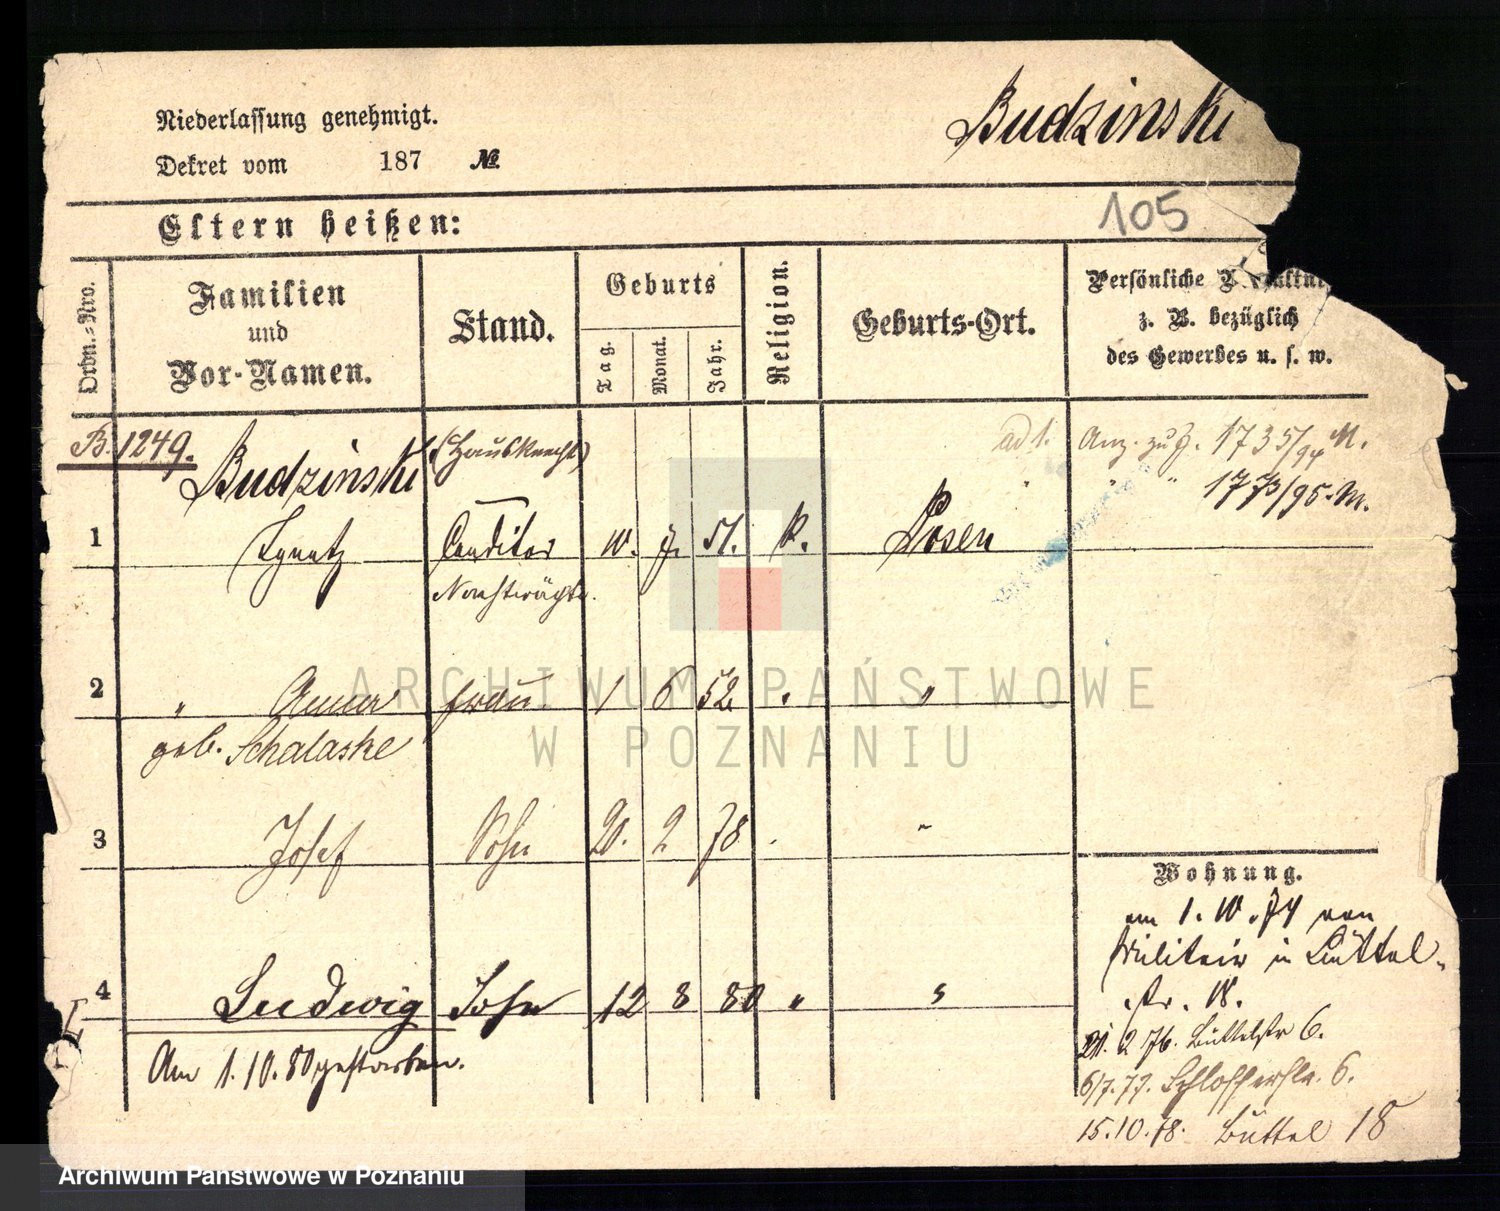 Niederlassung genehmigt.
Dekret vom 187 №
Budzinski
Eltern heißen:
105
Ordn.-Nro.
Familien
und
Vor-Namen.
Stand.
Geburts
Tag.
Monat.
Jahr.
Religion.
Geburts-Ort.
Persönliche
z. B. bezüglich
des Gewerbes u. s. w.
B. 1249.
Budzinski
(Hausknecht)
ad 1. Anz. zu J. 1735/94 M.
" " 1773/95. M.
1 Ignatz Conditor 10. 7. 51. k. Posen
Nachtwächter.
2 " Anna Frau. 1 6 52 "
geb. Schalaske
3 Josef Sohn 20. 2 78 "
4 Ludwig Sohn 12 8 80 "
Am 1.10.80 gestorben.
Wohnung.
am 1.10.74 von
Militair in Büttel-
str. 18.
20. 2 76. Büttelstr 6.
6/7.77. Schlosserstr. 6.
15.10.78. Büttel 18
ARCHIWUM PAŃSTWOWE
W POZNANIU
Archiwum Państwowe w Poznaniu